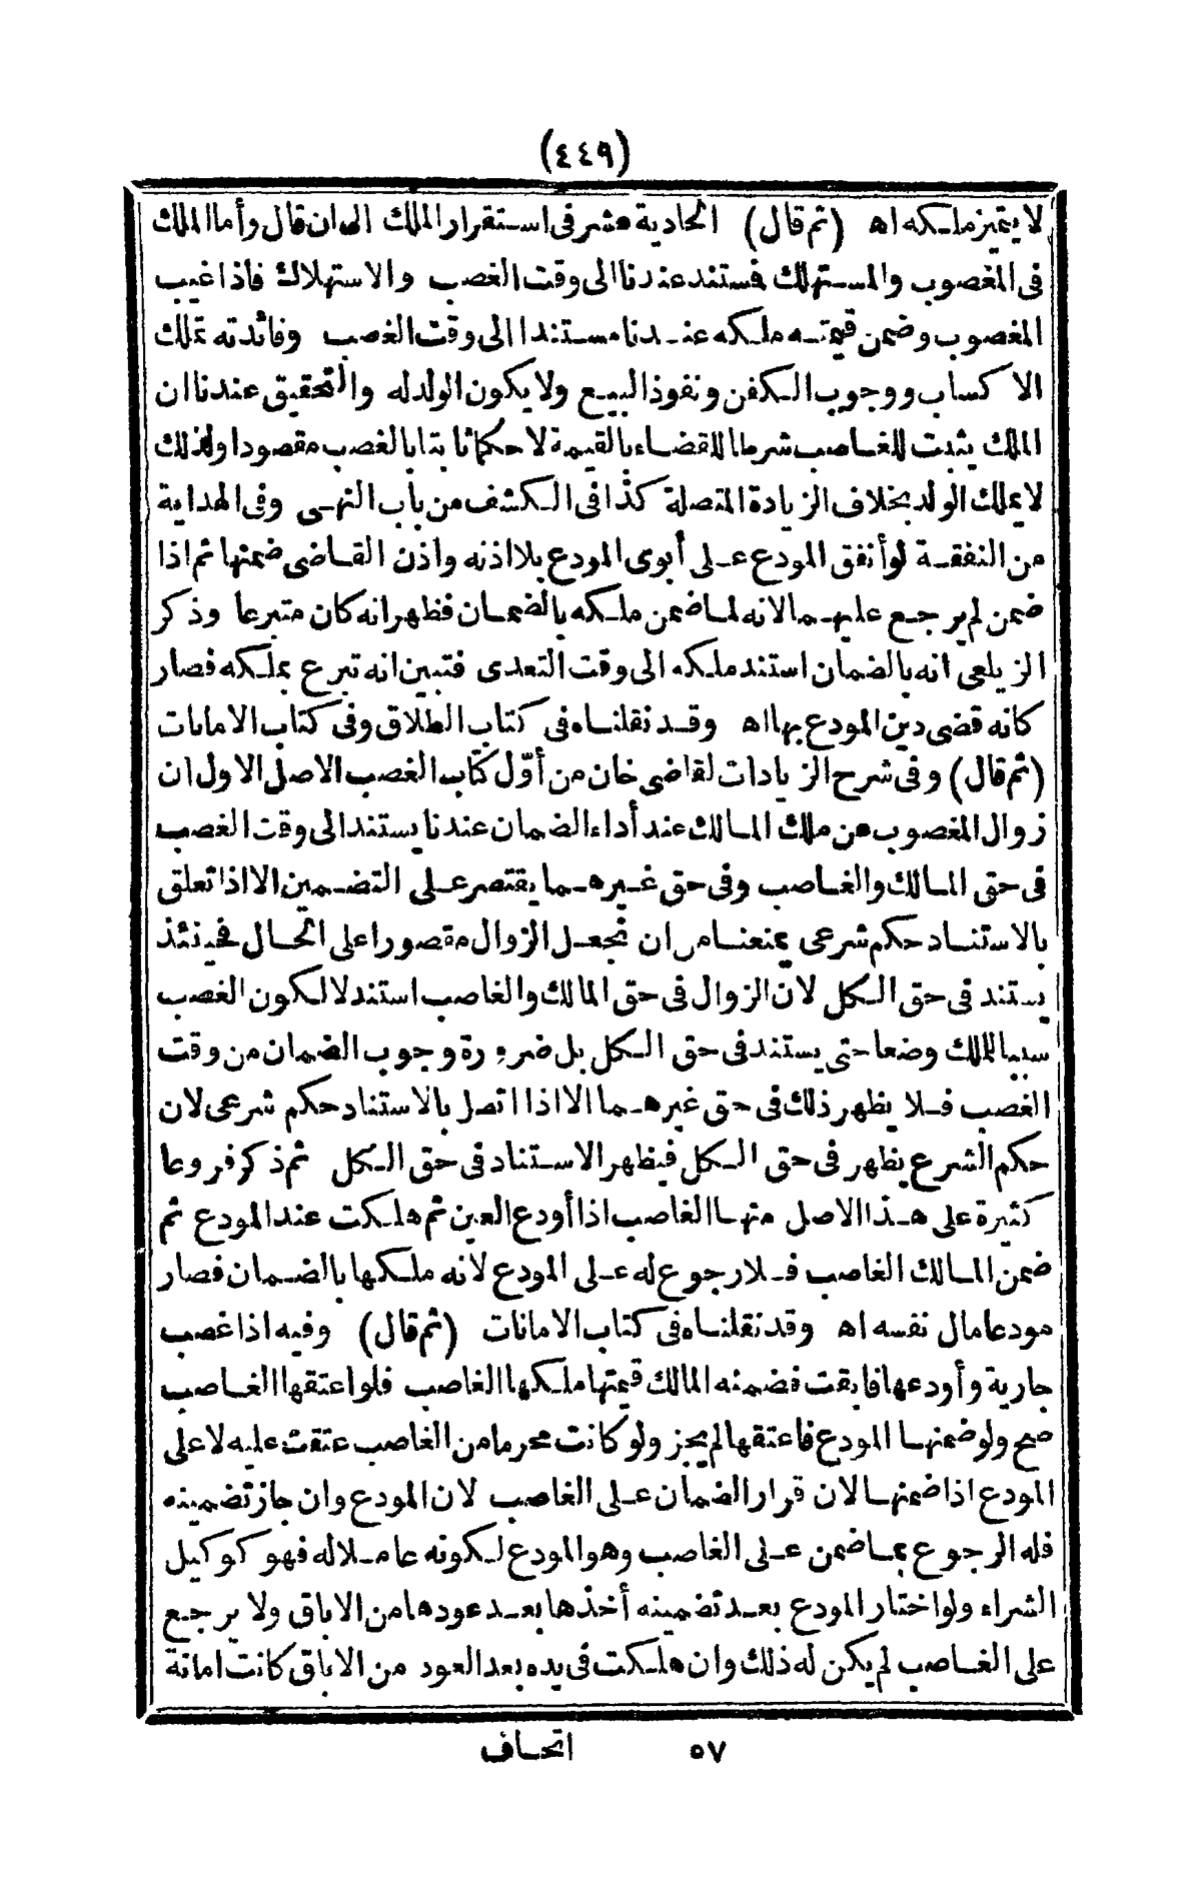 (٤٤٩)
لا يتميز ملكه اه (ثم قال) الحادية عشر فى استقرار الملك الى ان قال وأما الملك
فى المغصوب والمستهلك فستند عندنا الى وقت الغصب والاستهلاك فاذا غيب
المغصوب وضمن قيمته ملكه عندنا مستندا الى وقت الغصب وفائدته تملك
الاكساب ووجوب الكفن ونفوذ البيع ولا يكون الولد له والتحقيق عندنا ان
الملك يثبت للغاصب شرطا للقضاء بالقيمة لا حكما ثابتا بالغصب مقصودا ولذلك
لا يملك الولد بخلاف الزيادة المتصلة كذا فى الكشف من باب النهى وفى الهداية
من النفقة لو أنفق المودع على أبوى المودع بلا اذنه واذن القاضى ضمنها ثم اذا
ضمن لم يرجع عليهما لانه لما ضمن ملكه بالضمان فظهر انه كان متبرعا وذكر
الزيلعى انه بالضمان استند ملكه الى وقت التعدى فتبين انه تبرع بملكه فصار
كانه قضى دين المودع بها اه وقد نقلناه فى كتاب الطلاق وفى كتاب الامانات
(ثم قال) وفى شرح الزيادات لقاضى خان من أوّل كتاب الغصب الاصل الاول ان
زوال المغصوب عن ملك المالك عند أداء الضمان عندنا يستند الى وقت الغصب
فى حق المالك والغاصب وفى حق غيرهما يقتصر على التضمين الا اذا تعلق
بالاستناد حكم شرعى يمنعنا من ان نجعل الزوال مقصورا على الحال فحينئذ
يستند فى حق الكل لان الزوال فى حق المالك والغاصب استند لا لكون الغصب
سببا للملك وضعا حتى يستند فى حق الكل بل ضرورة وجوب الضمان من وقت
الغصب فلا يظهر ذلك فى حق غيرهما الا اذا اتصل بالاستناد حكم شرعى لان
حكم الشرع يظهر فى حق الكل فيظهر الاستناد فى حق الكل ثم ذكر فروعا
كثيرة على هذا الاصل منها الغاصب اذا أودع العين ثم هلكت عند المودع ثم
ضمن المالك الغاصب فلا رجوع له على المودع لانه ملكها بالضمان فصار
مودعا مال نفسه اه وقد نقلناه فى كتاب الامانات (ثم قال) وفيه اذا غصب
جارية وأودعها فابقت فضمنه المالك قيمتها ملكها الغاصب فلو اعتقها الغاصب
صح ولو ضمنها المودع فاعتقها لم يجز ولو كانت محرما من الغاصب عتقت عليه لا على
المودع اذا ضمنها لان قرار الضمان على الغاصب لان المودع وان جاز تضمينه
فله الرجوع بما ضمن على الغاصب وهو المودع لكونه عاملا له فهو كوكيل
الشراء ولو اختار المودع بعد تضمينه أخذها بعد عودها من الاباق ولا يرجع
على الغاصب لم يكن له ذلك وان هلكت فى يده بعد العود من الاباق كانت امانة
٥٧ اتحاف